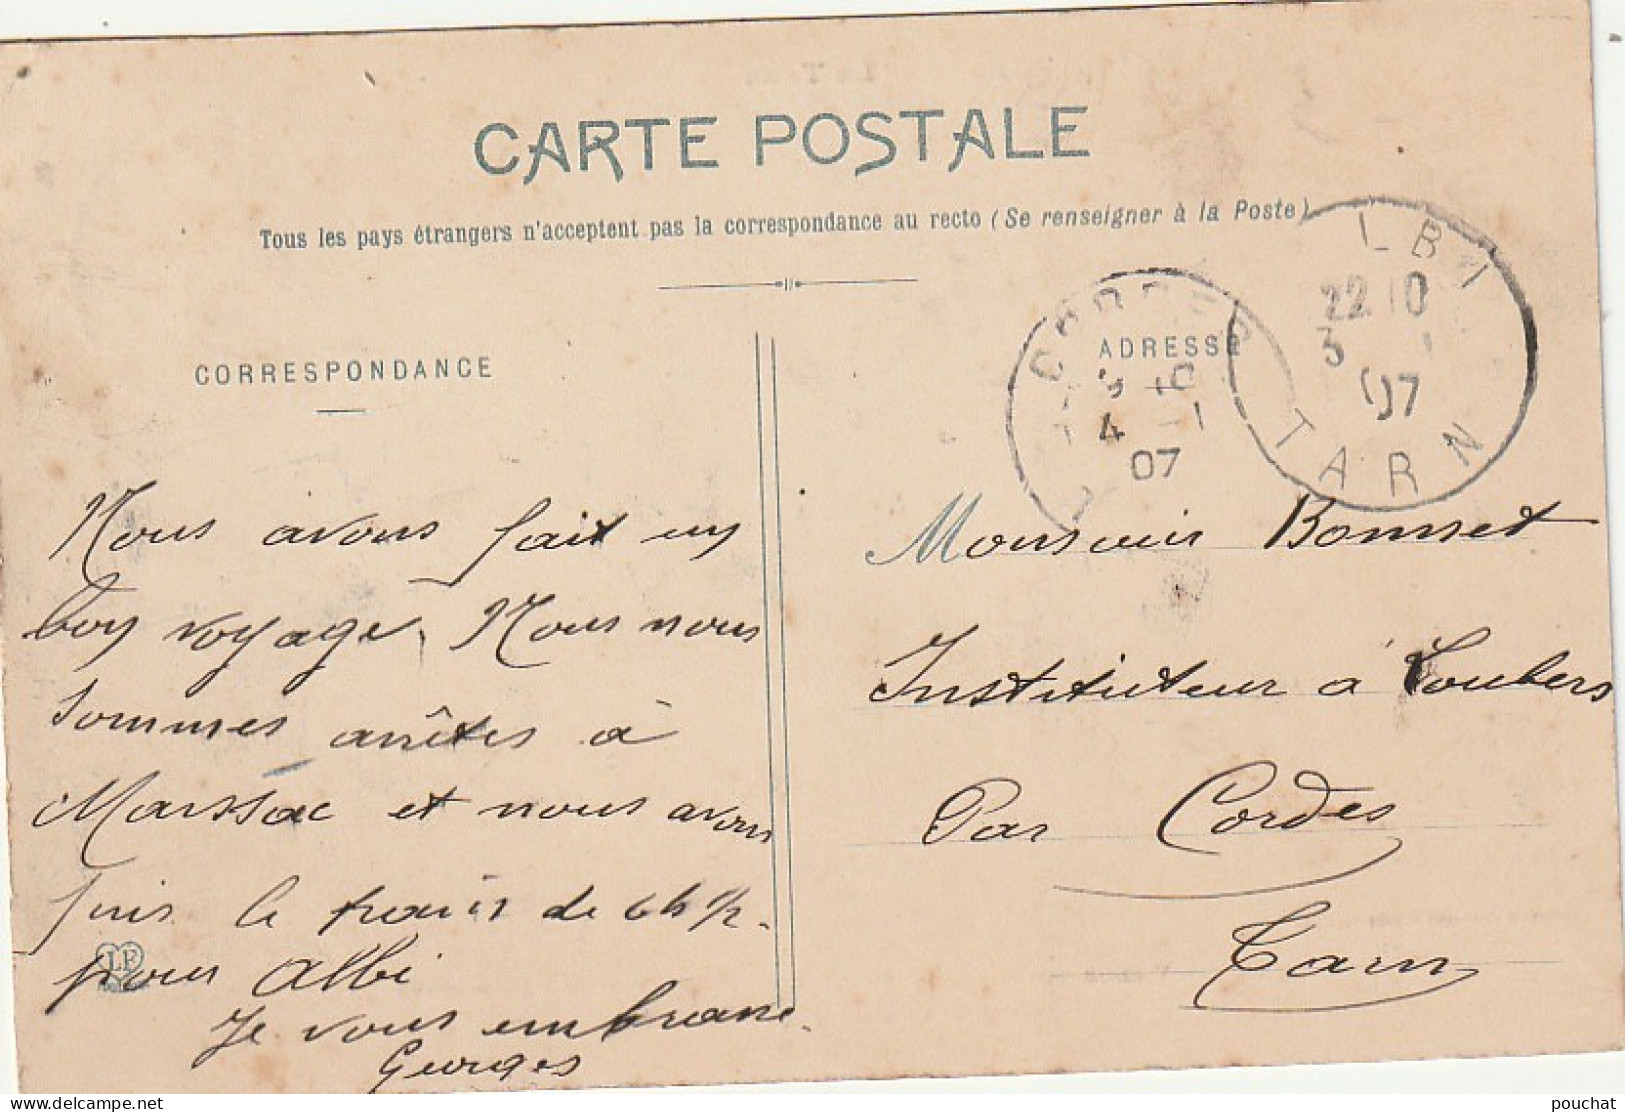 CARTE POSTALE
Tous les pays étrangers n'acceptent pas la correspondance au recto (Se renseigner à la Poste)
LBI
22 10
3 1
07
TARN
CORDES
4 -1
07
CORRESPONDANCE
ADRESSE
Nous avons fait un
bon voyage. Nous nous
sommes arrêtés à
Marssac et nous avons
pris le train de 6h 1/2
pour Albi
Je vous embrasse.
Georges
LF
Monsieur Bonnet
Instituteur à Loubers
Par Cordes
Tarn
pouchat